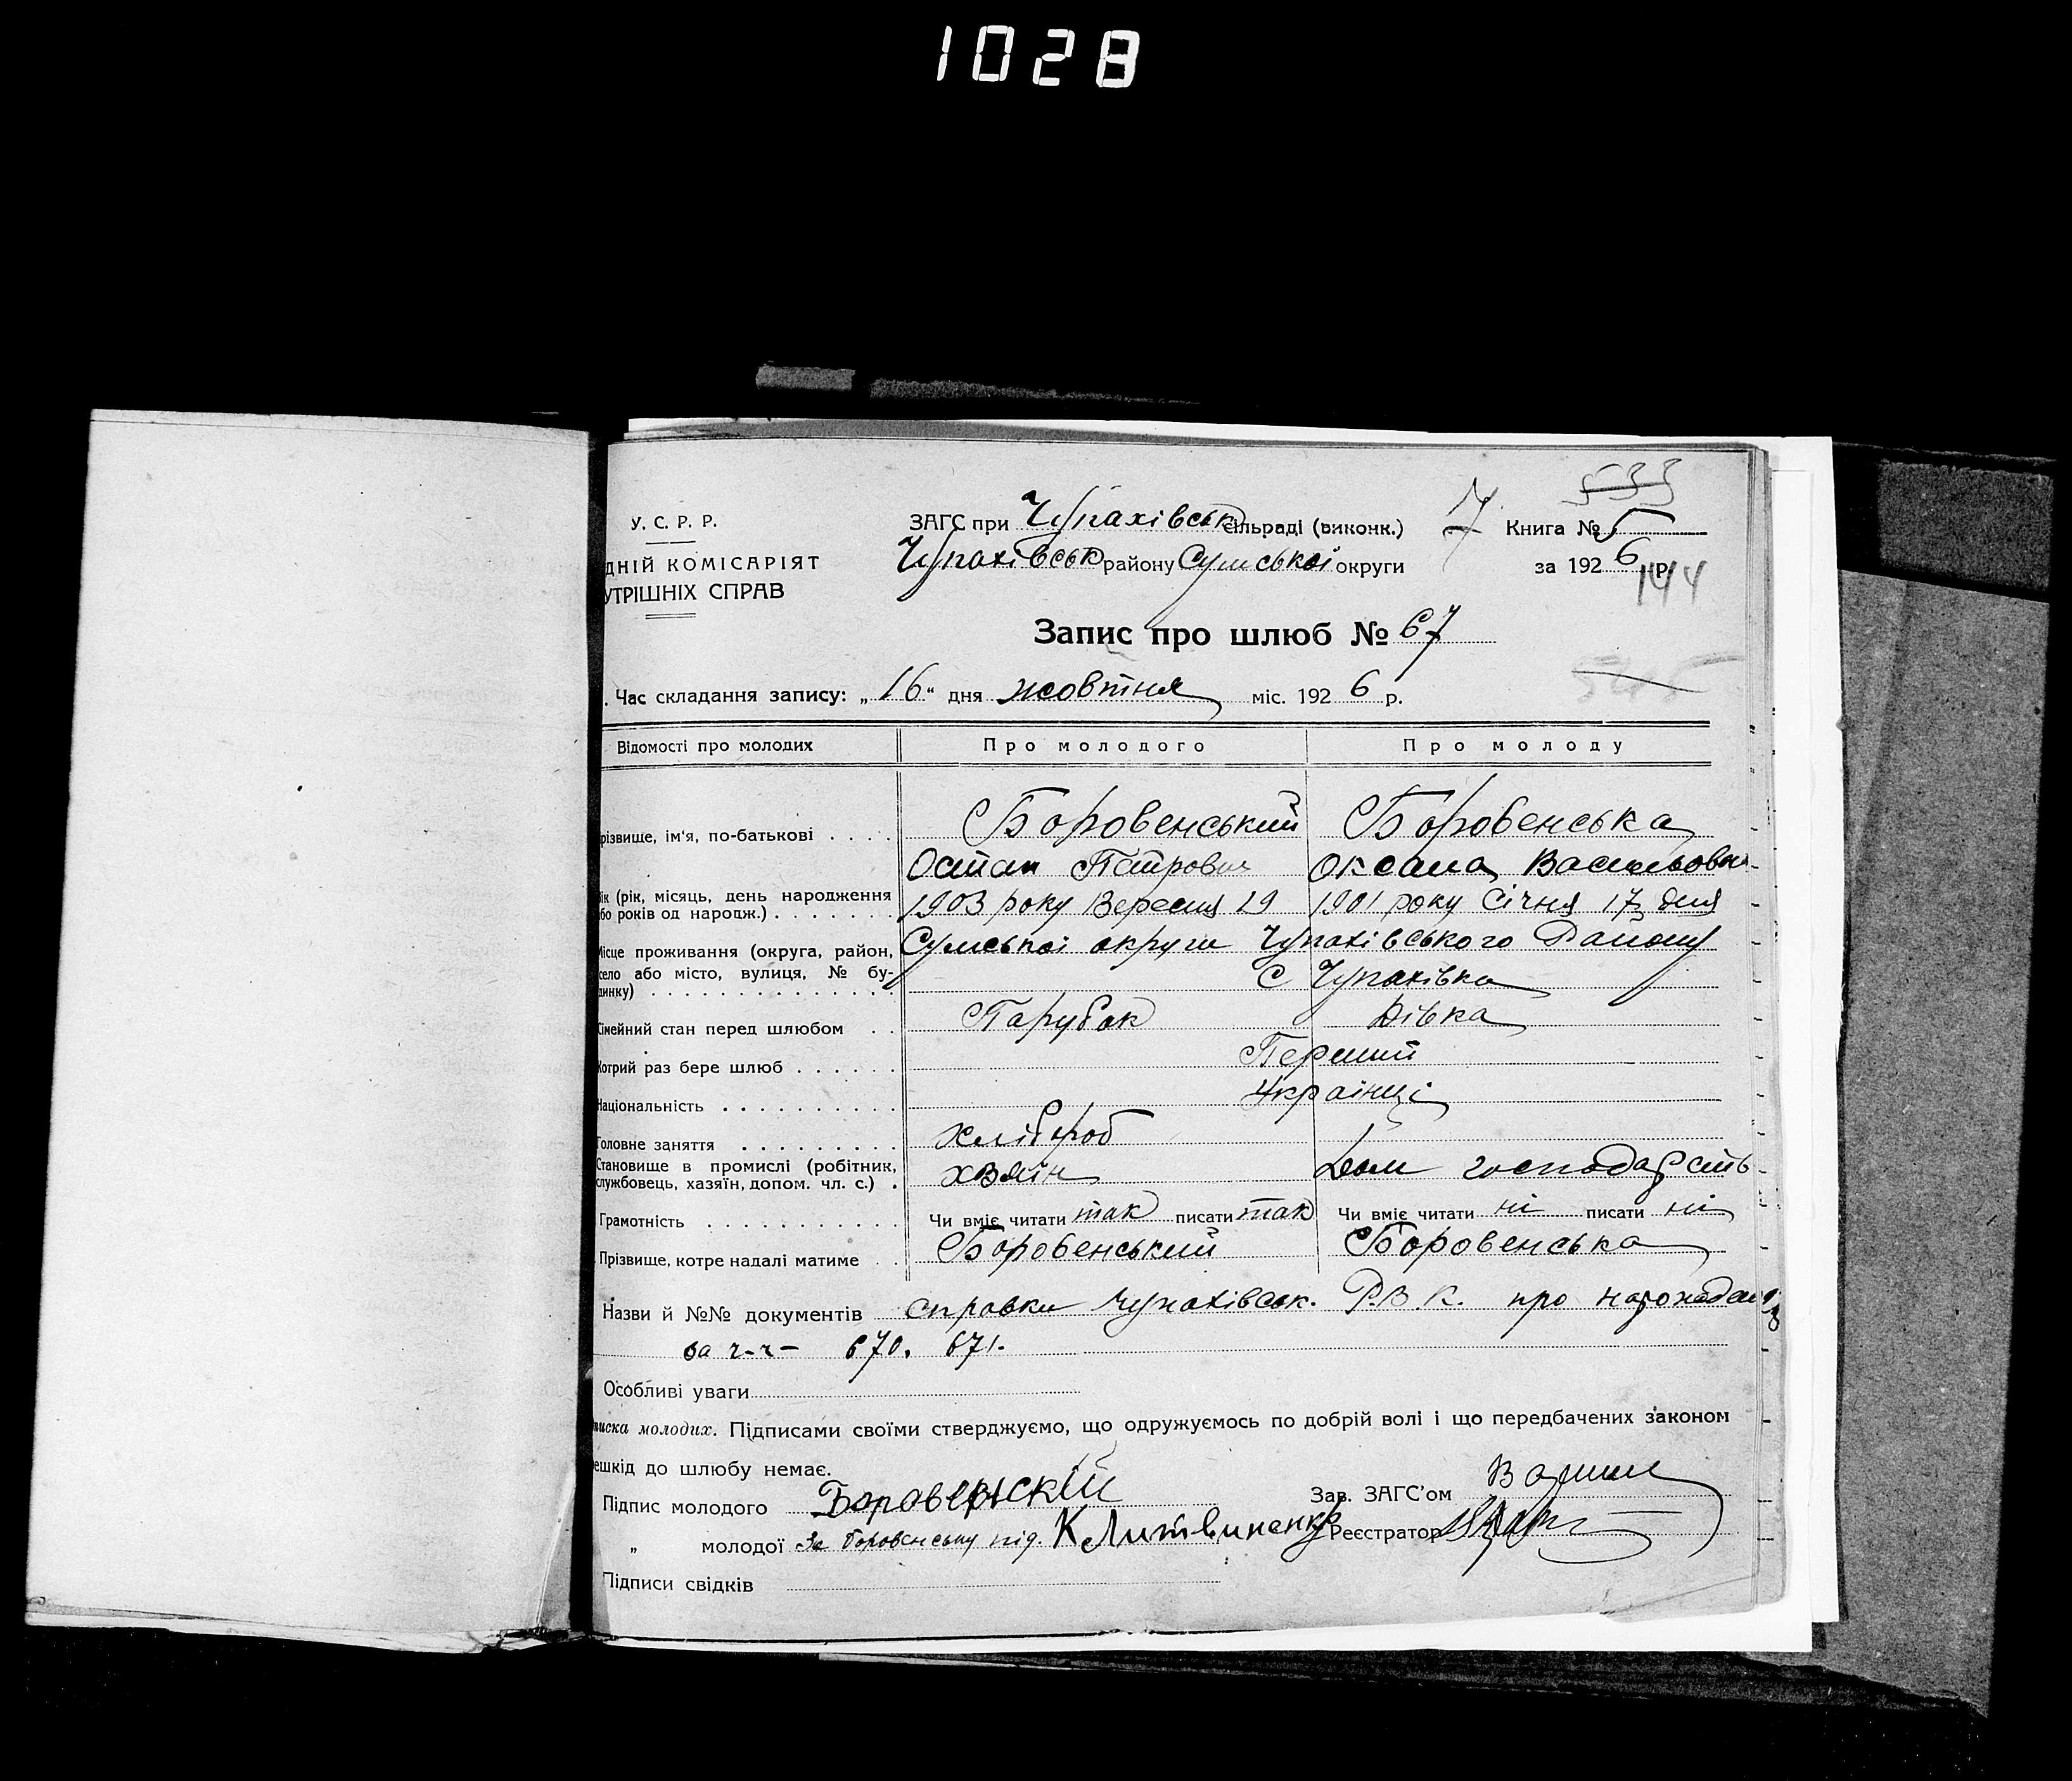 1028
533
У. С. Р. Р.
ЗАГС при Чупахівськ сільраді (виконк.)
7
Книга № 5
ДНІЙ КОМІСАРІЯТ
Чупахівськ району Сумської округи
за 1926 р.
144
УТРІШНІХ СПРАВ
Запис про шлюб № 67
. Час складання запису: „16“ дня жовтня міс. 1926 р.
Відомості про молодих
Про молодого
Про молоду
різвище, ім‘я, по-батькові . . . .
Боровенський
Боровенська
Остап Петрович
Оксана Васильовна
ік (рік, місяць, день народження
або років од народж.) . . . . . . .
1903 року Вересня 19
1901 року Січня 17 дня
Місце проживання (округа, район,
село або місто, вулиця, № бу-
динку) . . . . . . . . . . . . . .
Сумської округи Чупахівського Району
С Чупахівка
Сімейний стан перед шлюбом . .
Парубок
Дівка
Котрий раз бере шлюб . . . . . .
Перший
Національність . . . . . . . . . .
Українці
Головне заняття . . . . . . . . .
Хлібороб
Становище в промислі (робітник,
службовець, хазяїн, допом. чл. с.) .
хзяїн
Дом господарсть
Грамотність . . . . . . . . . . .
Чи вміє читати так писати так
Чи вміє читати ні писати ні
Прізвище, котре надалі матиме . .
Боровенський
Боровенська
Назви й №№ документів справки Чупахівськ. Р.В.К. про народження
за ч-ч- 670. 671.
Особливі уваги
писка молодих. Підписами своїми стверджуємо, що одружуємось по добрій волі і що передбачених законом
ешкід до шлюбу немає.
Підпис молодого Боровенскій
Зав. ЗАГС’ом
„ молодої За Боровенську під. К Литвиненко
Реєстратор
Підписи свідків